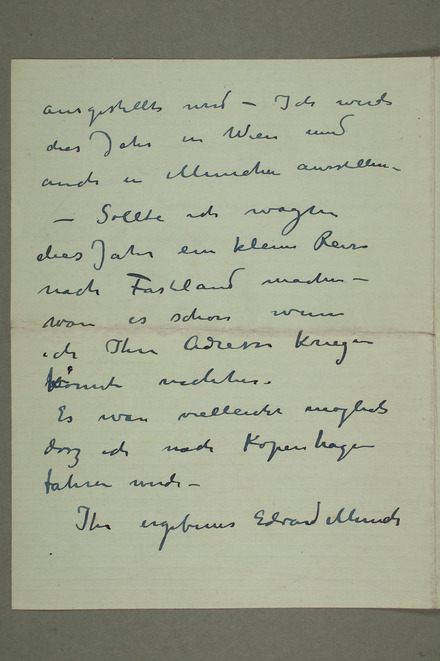 ausgestellt wird – Ich werde
dies Jahr in Wien und
auch in München ausstellen –
– Sollte ich wagen
dies Jahr ein kleine Reise
nach Fastland machen –
war es schön wenn
ich Ihre Adresse kriegen
könnte
Es war vielleicht möglich
dasz ich nach Kopenhagen
fahren werde –
Ihr ergebener Edvard Munch